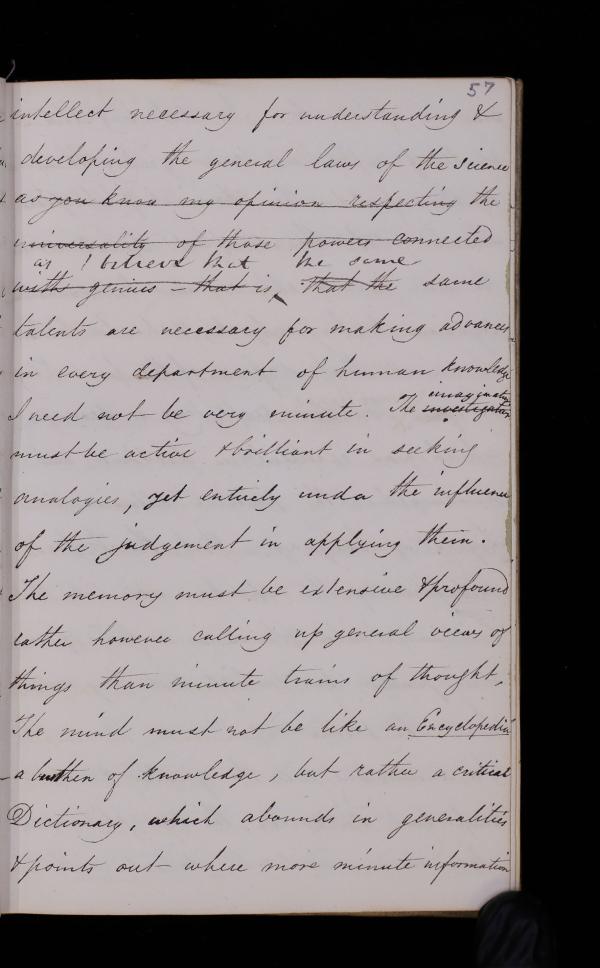 57
intellect necessary for understanding &
developing the general laws of the science
as you know my opinion respecting the
universality of those powers connected
as I believe that the same
with genius – that is, that the same
talents are necessary for making advances
in every department of human knowledge
I need not be very minute. The imagination
investigation
must be active & brilliant in seeking
analogies, yet entirely under the influence
of the judgement in applying them.
The memory must be extensive & profound
rather however calling up general views of
things than minute trains of thought,
The mind must not be like an Encyclopedia
– a burthen of knowledge, but rather a critical
Dictionary, which abounds in generalities
& points out where more minute information